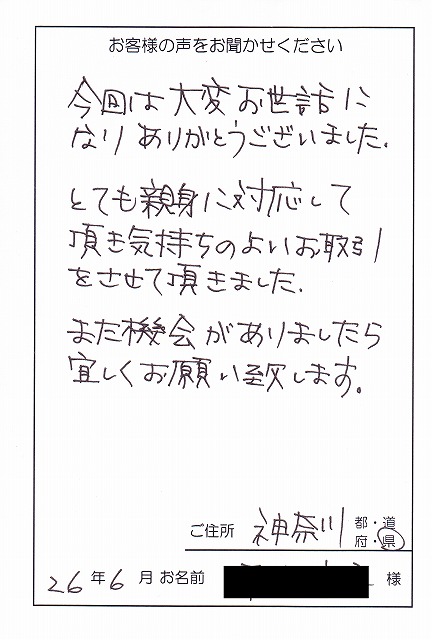 お客様の声をお聞かせください
今回は大変お世話に
なりありがとうございました.
とても親身に対応して
頂き気持ちのよいお取引
をさせて頂きました.
また機会がありましたら
宜しくお願い致します。
ご住所 神奈川 都・道
府・県
26年6月お名前 様